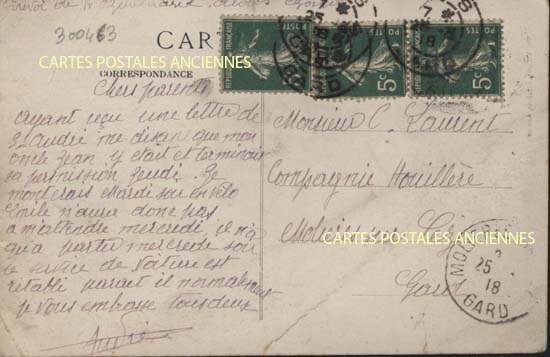 300463
CARTES POSTALES ANCIENNES
CAR
CORRESPONDANCE
RÉPUBLIQUE FRANÇAISE
POSTES
5c
POSTES
5c
POSTES
5c
Chers parents
ayant reçu une lettre de
St André me disant que mon
oncle Jean y était et terminait
sa permission jeudi. Je
monterais Mardi soir en Vélo
Emile n'aura donc pas
a m'attendre mercredi, il n'a
qu'a partir mercredi soir
le service de Voiture est
rétabli parait il normalement
je Vous embrasse tous deux
André
Monsieur C. Laurent
Compagnie Houillère
Molières sur Cèze
Gard
CARTES POSTALES ANCIENNES
CARTES POSTALES ANCIENNES
25
18
GARD